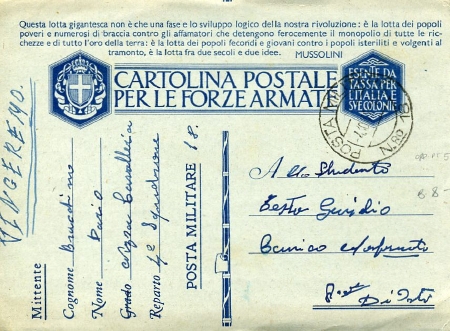 Questa lotta gigantesca non è che una fase e lo sviluppo logico della nostra rivoluzione: è la lotta dei popoli
poveri e numerosi di braccia contro gli affamatori che detengono ferocemente il monopolio di tutte le ric-
chezze e di tutto l'oro della terra: è la lotta dei popoli fecondi e giovani contro i popoli isteriliti e volgenti al
tramonto, è la lotta fra due secoli e due idee.
MUSSOLINI
CARTOLINA POSTALE
PER LE FORZE ARMATE
ESENTE DA
TASSA PER
L'ITALIA E
SVE COLONIE
POSTA MILITARE N. 18
VINCEREMO.
Mittente
Cognome
Nome Dario
Grado Cavalleria
Reparto 4° Squadrone
POSTA MILITARE 18.
Allo Studente